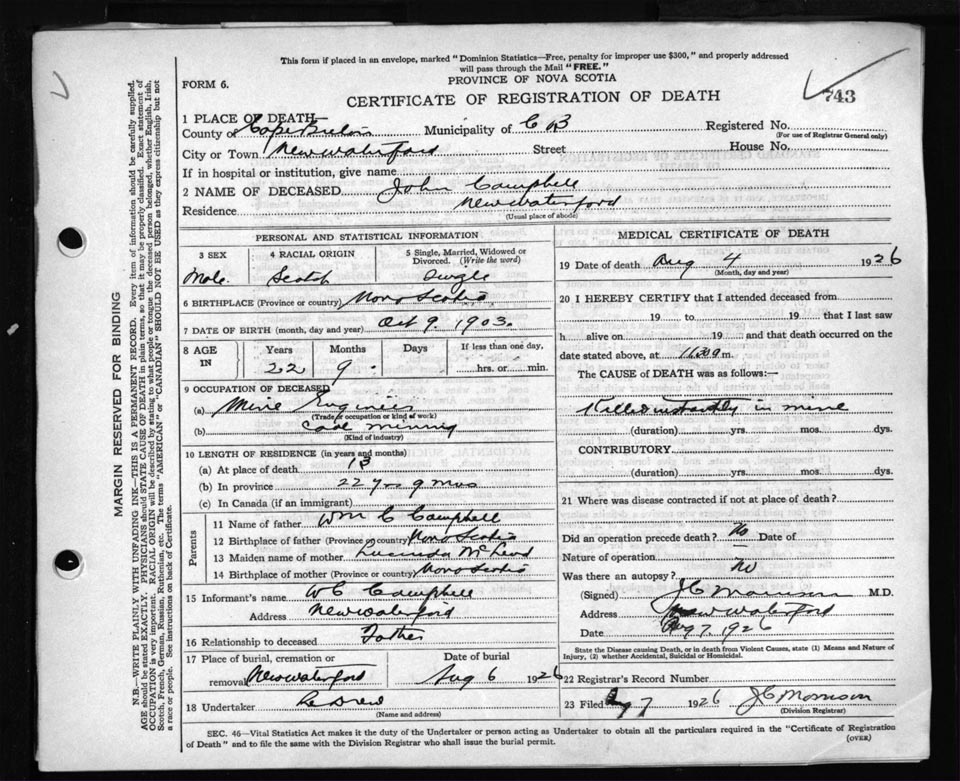 This form if placed in an envelope, marked "Dominion Statistics—Free, penalty for improper use $300," and properly addressed
will pass through the Mail "FREE."
PROVINCE OF NOVA SCOTIA
FORM 6.
743
CERTIFICATE OF REGISTRATION OF DEATH
1 PLACE OF DEATH
County of Cape Breton Municipality of C B Registered No.
(For use of Registrar General only)
City or Town New Waterford Street House No.
If in hospital or institution, give name
2 NAME OF DECEASED John Campbell
Residence New Waterford
(Usual place of abode)
PERSONAL AND STATISTICAL INFORMATION
3 SEX 4 RACIAL ORIGIN 5 Single, Married, Widowed or Divorced. (Write the word)
Male. Scotch Single
6 BIRTHPLACE (Province or country) Nova Scotia
7 DATE OF BIRTH (month, day and year) Oct 9. 1903.
8 AGE IN Years Months Days If less than one day,
22 9 hrs. or min.
9 OCCUPATION OF DECEASED
(a) Mine Engineer
(Trade or occupation or kind of work)
(b) Coal mining
(Kind of industry)
10 LENGTH OF RESIDENCE (in years and months)
(a) At place of death 13
(b) In province 22 yrs 9 mos
(c) In Canada (if an immigrant)
Parents
11 Name of father Wm C Campbell
12 Birthplace of father (Province or country) Nova Scotia
13 Maiden name of mother Lucinda McLeod
14 Birthplace of mother (Province or country) Nova Scotia
15 Informant's name W C Campbell
Address New Waterford
16 Relationship to deceased Father
17 Place of burial, cremation or Date of burial
removal New Waterford Aug 6 1926
18 Undertaker LeDrew
(Name and address)
MEDICAL CERTIFICATE OF DEATH
19 Date of death Aug 4 1926
(Month, day and year)
20 I HEREBY CERTIFY that I attended deceased from
19 to 19 that I last saw
h alive on 19 and that death occurred on
date stated above, at 11.30 a m.
The CAUSE of DEATH was as follows:—
Killed instantly in mine
(duration) yrs. mos. dys.
CONTRIBUTORY
(duration) yrs. mos. dys.
21 Where was disease contracted if not at place of death?
Did an operation precede death? No Date of
Nature of operation
Was there an autopsy? No
(Signed) J C Morrison M.D.
Address New Waterford
Date Aug 7. 1926
State the Disease causing Death, or in death from Violent Causes, state (1) Means and Nature of
Injury, (2) whether Accidental, Suicidal or Homicidal.
22 Registrar's Record Number
23 Filed Aug 7 1926 J C Morrison
(Division Registrar)
SEC. 46—Vital Statistics Act makes it the duty of the Undertaker or person acting as Undertaker to obtain all the particulars required in the "Certificate of Registration
of Death" and to file the same with the Division Registrar who shall issue the burial permit.
(OVER)
MARGIN RESERVED FOR BINDING
N.B.—WRITE PLAINLY WITH UNFADING INK—THIS IS A PERMANENT RECORD. Every item of information should be carefully supplied.
AGE should be stated EXACTLY. PHYSICIANS should STATE CAUSE OF DEATH in plain terms, so that it may be properly classified. Exact statement of
OCCUPATION is very important. RACIAL ORIGIN will be described by stating to what people or tongue the deceased person belonged, whether English, Irish,
Scotch, French, German, Russian, Ruthenian, etc. The terms "AMERICAN" or "CANADIAN" SHOULD NOT BE USED as they express citizenship but not
a race or people. See instructions on back of Certificate.